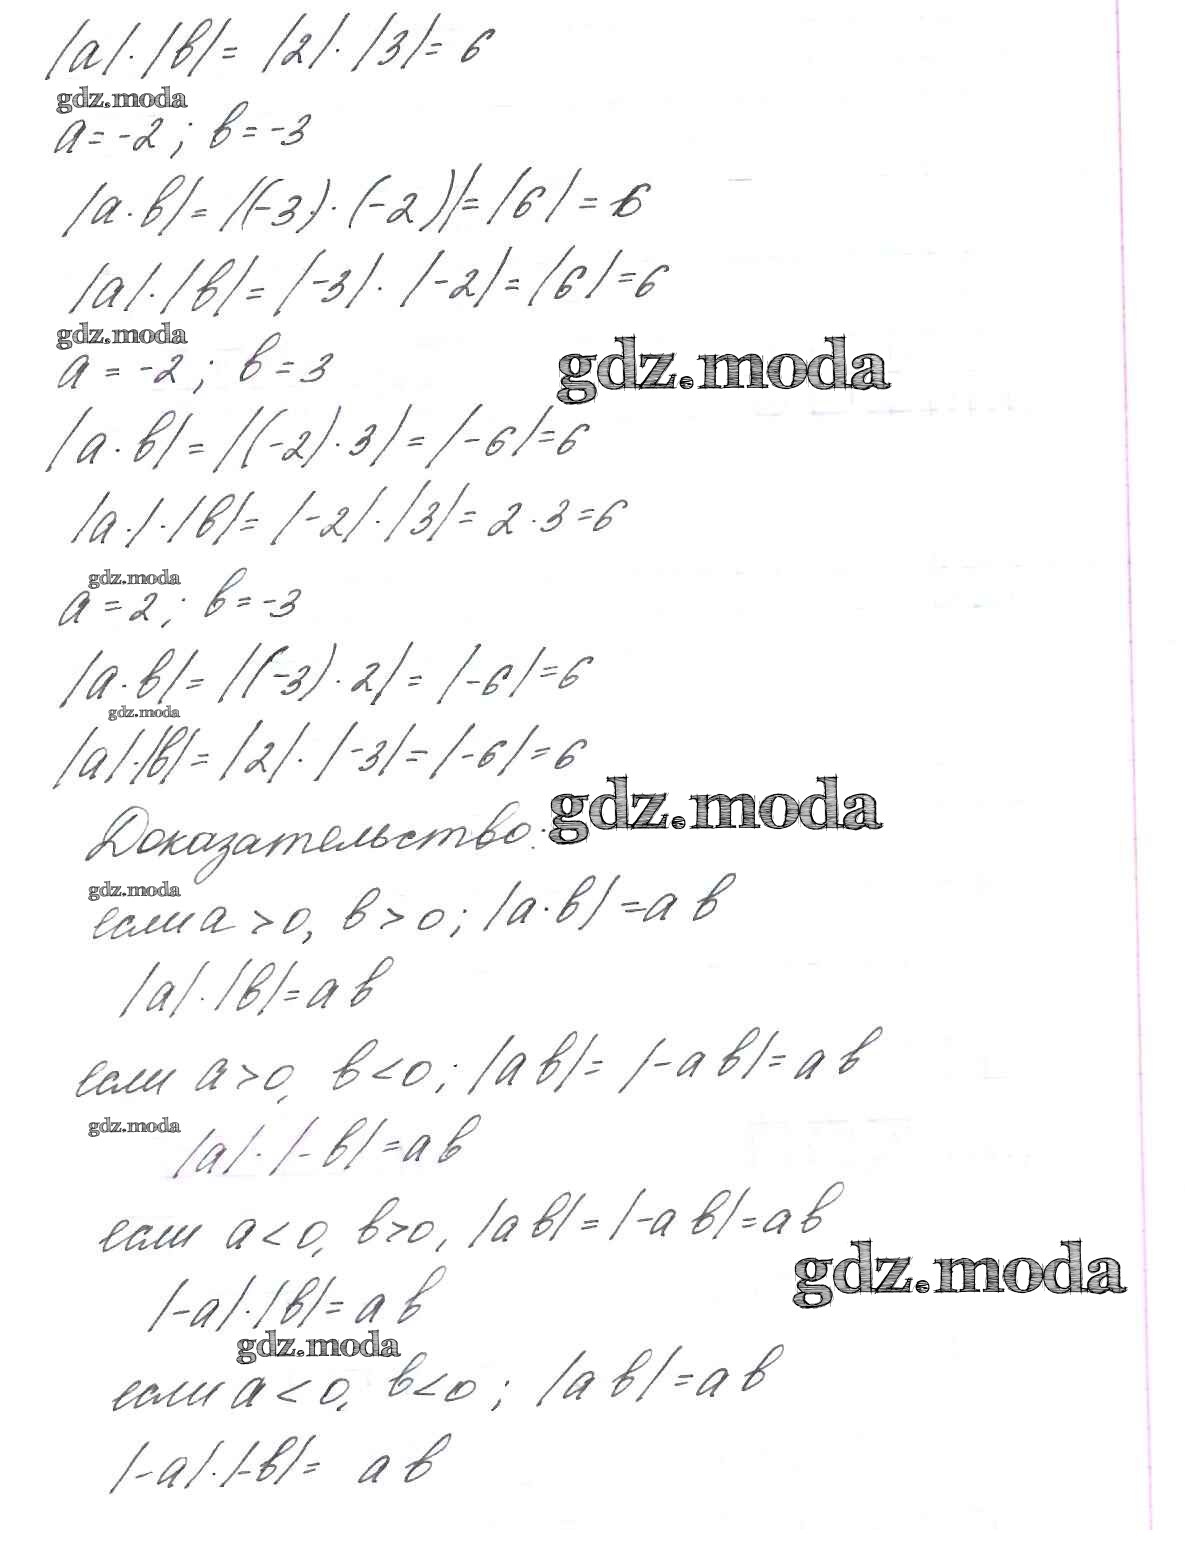 |a|·|b|= |2|·|3|= 6
gdz.moda
a=-2; b=-3
|a·b|=|(-3)·(-2)|=|6|=6
|a|·|b|=|-3|·|-2|=|6|=6
gdz.moda
a=-2; b=3
gdz.moda
|a·b|=|(-2)·3|=|-6|=6
|a·|·|b|=|-2|·|3|=2·3=6
gdz.moda
a=2; b=-3
|a·b|=|(-3)·2|=|-6|=6
gdz.moda
|a|·|b|=|2|·|-3|=|-6|=6
Доказательство:
gdz.moda
gdz.moda
если a>0, b>0; |a·b|=ab
|a|·|b|=ab
если a>0, b<0; |ab|=|-ab|=ab
gdz.moda
|a|·|-b|=ab
если a<0, b>0, |ab|=|-ab|=ab
gdz.moda
|-a|·|b|=ab
gdz.moda
если a<0, b<0; |ab|=ab
|-a|·|-b|= ab